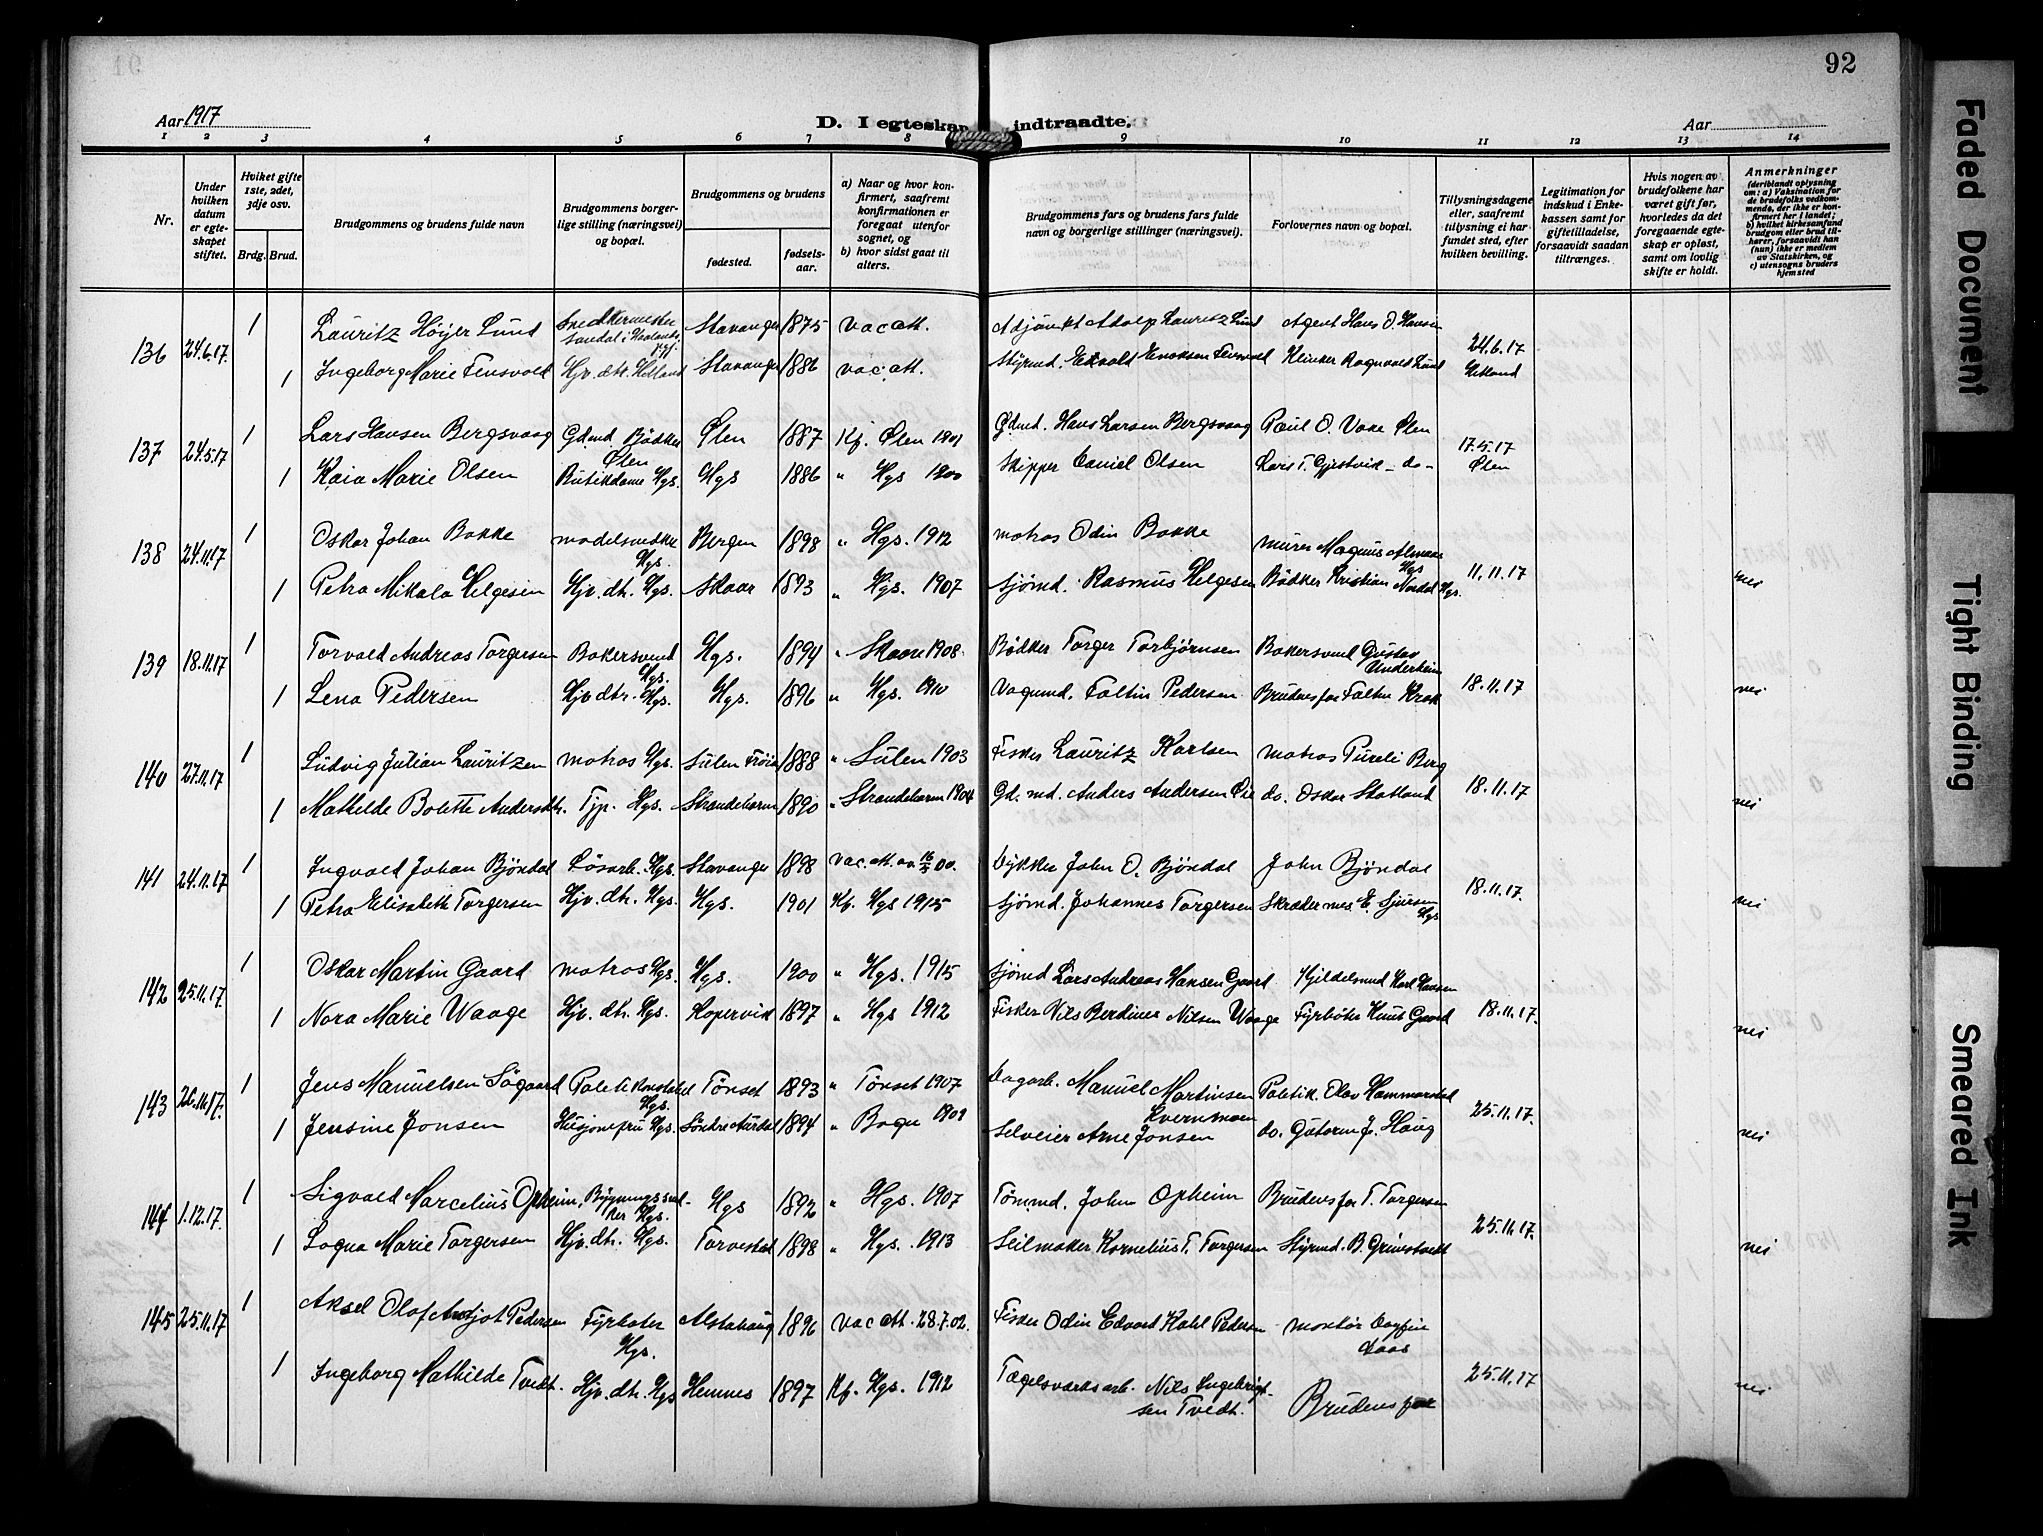 92
Aar 1917
D. I egteskap indtraadte.
Aar
1 2 3 4 5 6 7 8 9 10 11 12 13 14
Nr.
Under hvilken datum er egteskapet stiftet.
Hvilket gifte 1ste, 2det, 3dje osv.
Brdg. Brud.
Brudgommens og brudens fulde navn
Brudgommens borgerlige stilling (næringsvei) og bopæl.
Brudgommens og brudens
fødested.
fødselsaar.
a) Naar og hvor konfirmert, saafremt konfirmationen er foregaat utenfor sognet, og
b) hvor sidst gaat til alters.
Brudgommens fars og brudens fars fulde navn og borgerlige stillinger (næringsvei).
Forlovernes navn og bopæl.
Tillysningsdagene eller, saafremt tillysning ei har fundet sted, efter hvilken bevilling.
Legitimation for indskud i Enkekassen samt for giftetilladelse, forsaavidt saadan tiltrænges.
Hvis nogen av brudefolkene har været gift før, hvorledes da det foregaaende egteskap er opløst, samt om lovlig skifte er holdt.
Anmerkninger (deriblandt oplysning om: a) Vaksination for de brudefolks vedkommende, der ikke er konfirmert her i landet; b) hvilket kirkesamfund brudgom eller brud tilhører, forsaavidt han (hun) ikke er medlem av Statskirken, og c) utensogns bruders hjemsted
136 24.6.17. 1 Lauritz Höyer Lund Snedkermester Sandal i Stavanger 1875 vac att. Adjunkt Adolp Lauritz Lund Agent Hans O. Hansen 24.6.17
1 Ingeborg Marie Fensvold Hjv. dtr. Hetland Stavanger 1886 vac. att. Styrmd. Edvald Enoksen Fensvold Klinker Ragnvald Lund Hetland
137 24.5.17 1 Lars Hansen Bergsvaag Gdmd. Bödker Ølen Ølen 1887 Kf. Ølen 1901 Gdmd. Hans Larsen Bergsvaag Paul O. Vake Ølen 17.5.17
1 Kaia Marie Olsen Butikdame Hgs. Hgs 1886 " Hgs 1900 Skipper Daniel Olsen Lars T. Gjestvik - do - Ølen
138 24.11.17 1 Oskar Johan Bakke modelsnedker Hgs. Bergen 1898 " Hgs. 1912 matros Odin Bakke murer Magnus Almaas Hgs
1 Petra Mikala Helgesen Hjv. dtr. Hgs. Skaar 1893 " Hgs. 1907 Sjömd. Rasmus Helgesen Bödker Kristian Nordal Hgs. 11.11.17 nei
139 18.11.17 1 Torvald Andreas Torgersen Bakersvend Hgs. Hgs. 1894 " Skaare 1908 Bödker Torger Torbjörnsen Bakersvend Gustav Underheim
1 Lena Pedersen Hjv dtr. Hgs. Hgs. 1896 " Hgs. 1910 Vognmd. Faltin Pedersen Brudens far Faltin 18.11.17 nei
140 27.11.17 1 Ludvig Julian Lauritzen matros Hgs. Sulen Fröia 1888 " Sulen 1903 Fisker Lauritz Karlsen matros Pureli Berg
1 Mathilde Bolette Andersdtr. Tjp. Hgs. Strandebarm 1890 " Strandebarm 1904 Gd. md. Anders Andersen Øie do. Oskar Skatland 18.11.17 nei
141 24.11.17 1 Ingvald Johan Bjöndal Lösarb. Hgs. Stavanger 1898 vac. att. av 00. Dykker John O. Bjöndal John Bjöndal
1 Petra Elisabeth Torgersen Hjv. dtr. Hgs. Hgs. 1901 Kf. Hgs 1915 Sjömd. Johannes Torgersen Skræder mes. E. Sjursen Hgs 18.11.17. nei
142 25.11.17. 1 Oskar Martin Gaard matros Hgs. Hgs. 1900 " Hgs. 1915 Sjömd Lars Andreas Hansen Gaard Karl Hansen
1 Nora Marie Waage Hjv. dtr. Hgs. Kopervik 1897 " Hgs 1912 Fisker Nils Berdines Nilsen Waage Fyrböter Knut Gaard 18.11.17. nei
143 1 Jens Manuelsen Sögaard Politikonstabel Hgs. Tönset 1893 " Tönset 1907 Dagarb. Manuel Martinsen Kvernmoen Politik. Olav Hammarstad
1 Jensine Jonsen Husjomfru Hgs. Söndre Aurdal 1894 " Bagn 1909 Selveier Arne Jonsen do. Gutorm J. Haug 25.11.17. nei
144 1.12.17. 1 Sigvald Marcelius Opheim, Bygningssnedker Hgs. Hgs 1892 " Hgs. 1907 Tömmd. John Opheim Brudens far T. Torgersen
1 Lagna Marie Torgersen Hjv. dtr. Hgs. Torvestad 1898 " Hgs. 1913 Seilmaker Kornelius T. Torgersen Styrmd. B. Grindtveit 25.11.17. nei
145 25.11.17 1 Aksel Olaf Pedersen Fyrböter Hgs. Alstahaug 1896 vac att. 28.7.02. Fisker Odin Edvart Kahl Pedersen montör Dagfin Daas
1 Ingeborg Mathilde Tvedt. Hjv. dtr. Hgs Hemnes 1897 Kf. Hgs. 1912 Tægelsverksarb. Nils Ingebrigtsen Tvedt. Brudens far 25.11.17 nei
Faded Document
Tight Binding
Smeared Ink